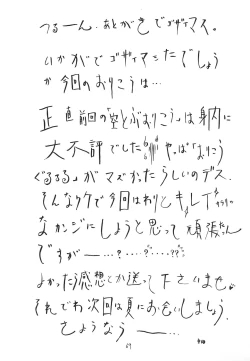 つるーん。あとがきでゴザイマス。
いかがでゴザイマシたでしょう
か今回のおりこうは…
正直前回の「空とぶおりこう」は身内に
大不評でした。 やっぱ「おりこう
ぐるるる」がマズかったらしいのデス。
そんなワケで今回はわりとキレイ
なカンジにしようと思って頑張った
ですがー…？……？？
よかったら感想とか送って下さいませ。
それでわ次回は夏にお会いしましょう。
さようならー…。